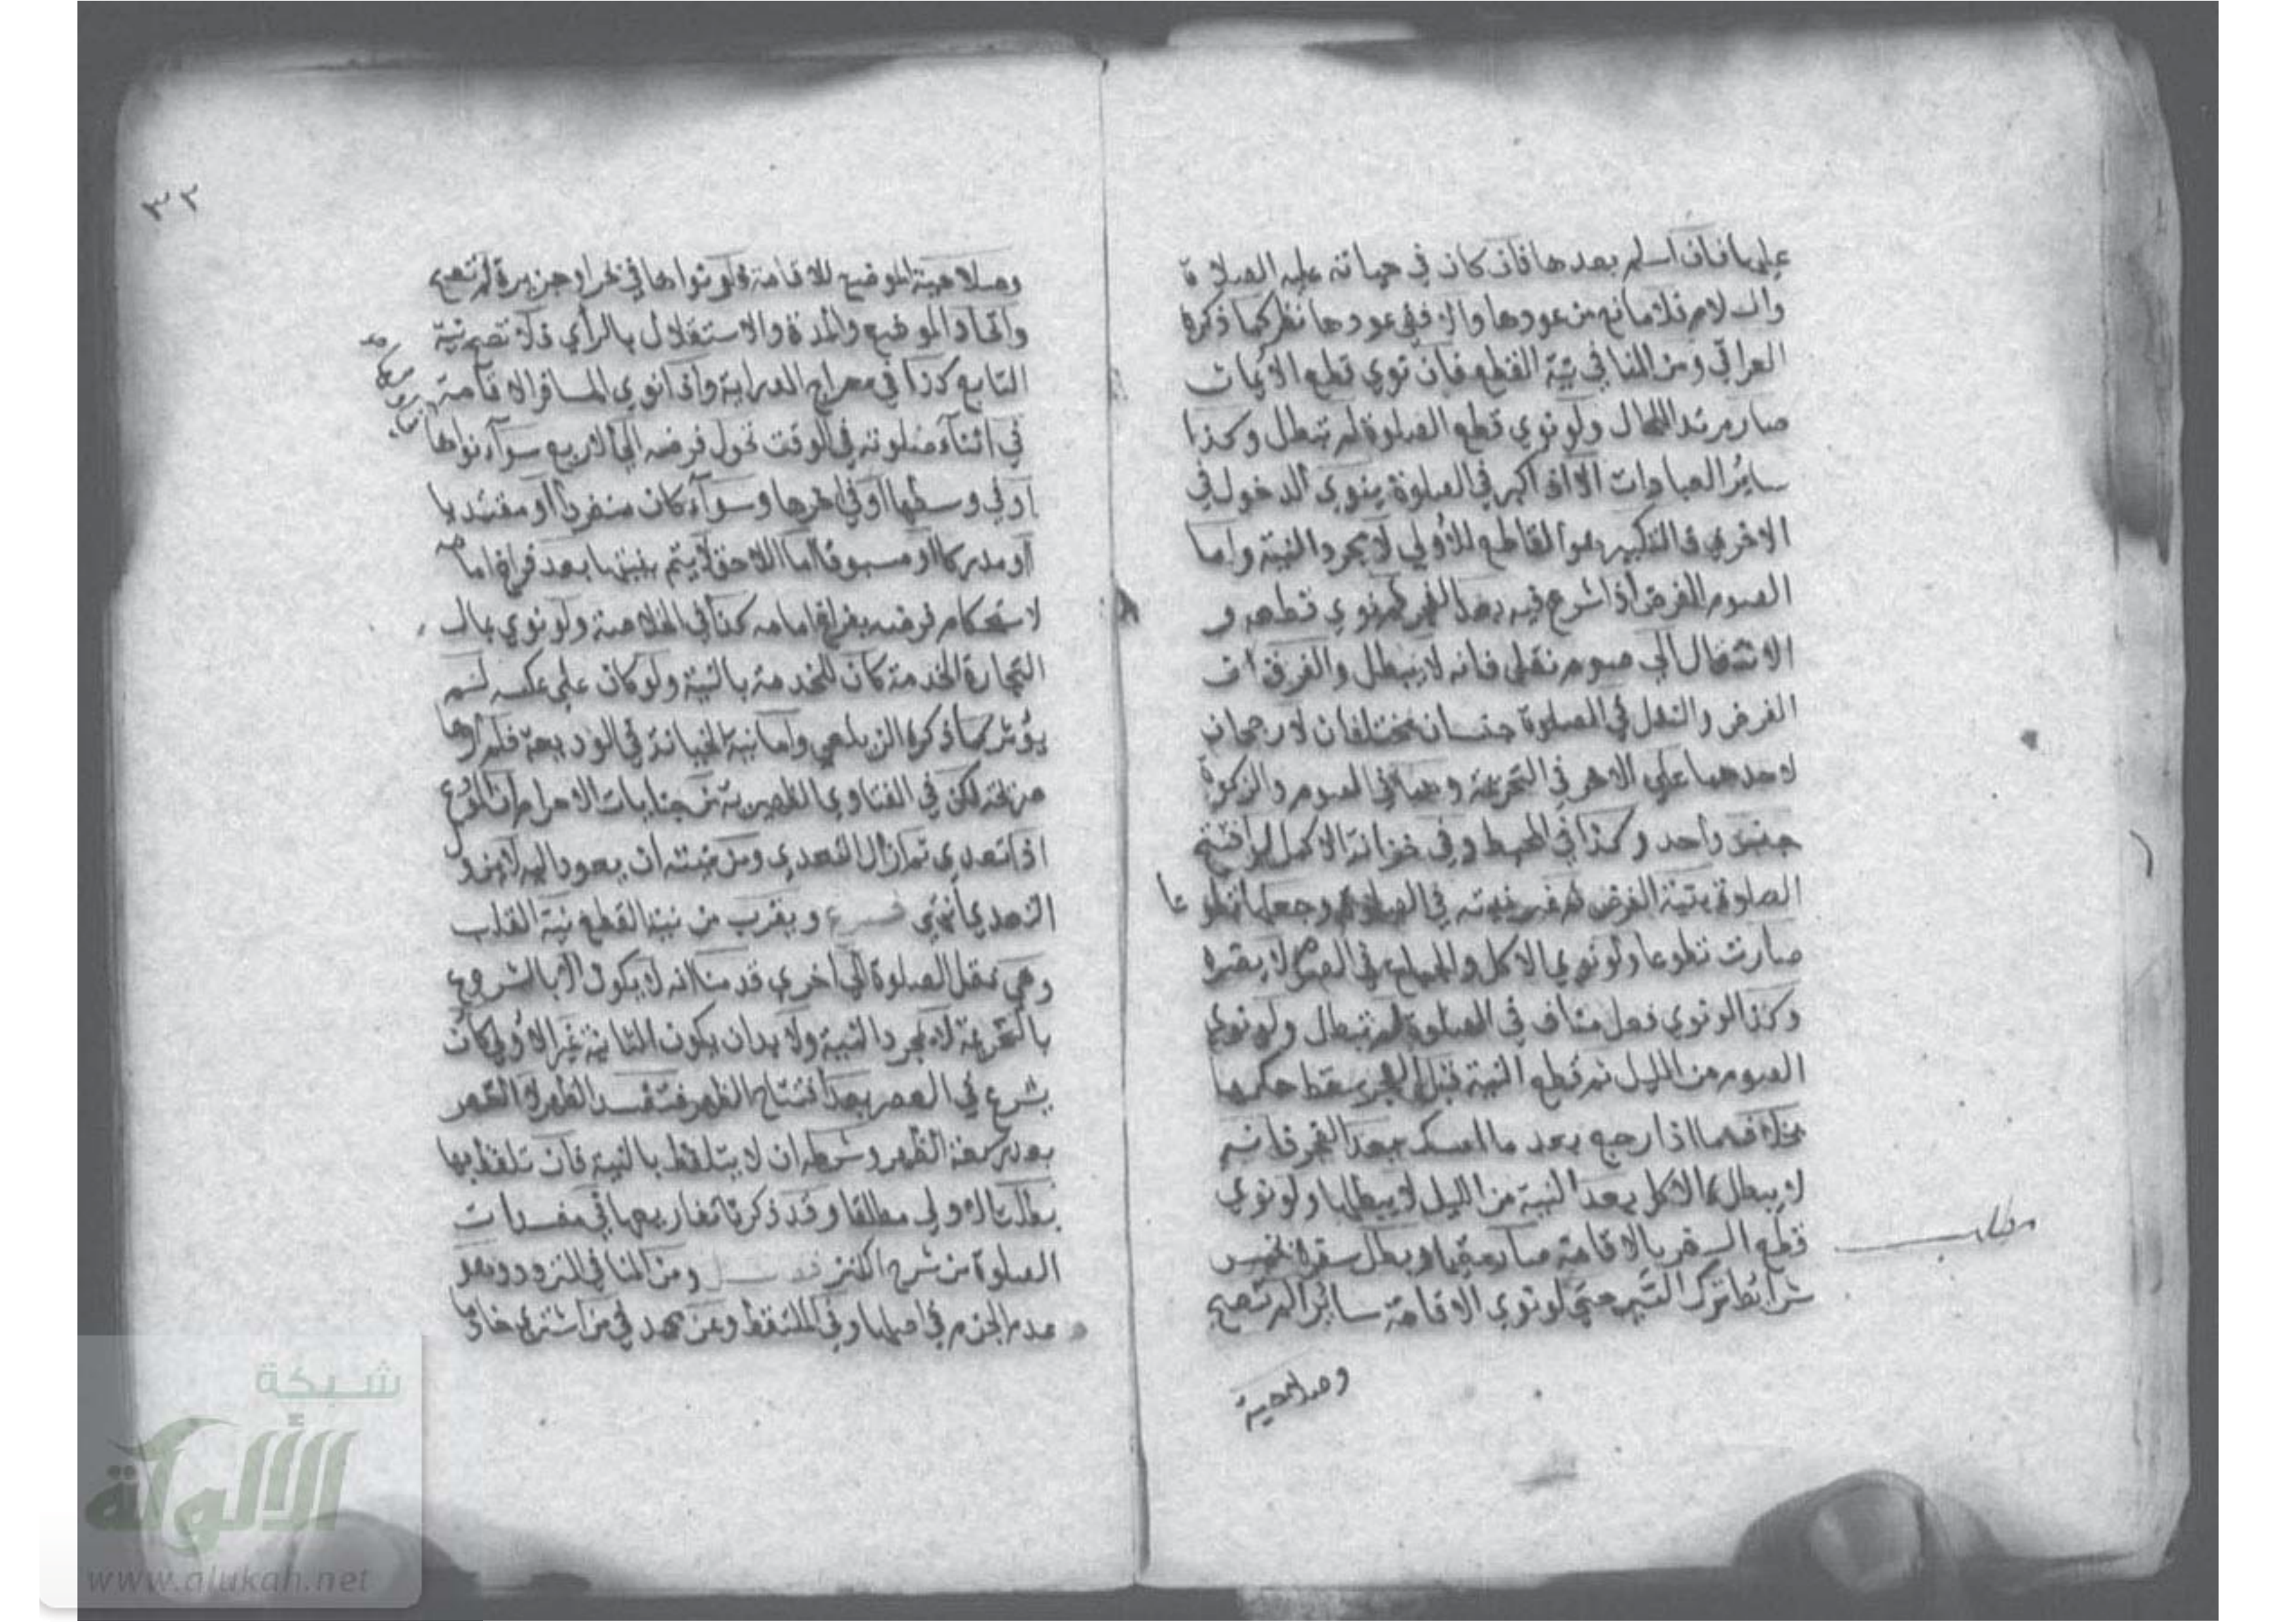 عليها فان اسلم بعدها فان كان في حياته عليه الصلاة
والسلام فلا مانع من عودها والا ففي عودها نظر كما ذكره
العراقي ومن المنافي نية القطع فان نوي قطع الايمان
صار مرتدا للحال ولو نوي قطع الصلوة لم تبطل وكذا
ساير العبادات الا اذا كبر في الصلوة ينوي الدخول في
الاخري فالتكبير هو القاطع للاولي لا بمجرد النية واما
الصوم الفرض اذا شرع فيه بعد الفجر ثم نوي قطعه و
الانتقال الي صوم نفل فانه لا يبطل والفرق ان
الفرض والنفل في الصلوة جنسان مختلفان لا رجحان
لاحدهما علي الاخر في التحريمة وهما في الصوم والزكوة
جنس واحد وكذا في المحيط وفي خزانة الاكمل لو افتتح
الصلوة بنية الفرض ثم غير نيته في الصلوة وجعلها تطوعا
صارت تطوعا ولو نوي الاكل والجماع في الصوم لا يضره
وكذا لو نوي فعل مناف في الصلوة لم تبطل ولو نوي
الصوم من الليل ثم قطع النية قبل الفجر سقط حكمها
بخلاف ما اذا رجع بعد ما امسك بعد الفجر فانه
لا يبطل كالاكل بعد النية من الليل لا يبطلها ولو نوي
قطع السفر بالاقامة صار مقيما وبطل سفره بخمس
شرائط ترك السير حتي لو نوي الاقامة سائرا لم تصح
وصلاحية
مطلب
٣٢
وصلاحية الموضع للاقامة فلو نواها في بحر او جزيرة لم تصح
واتحاد الموضع والمدة والاستقلال بالرأي فلا تصح نية
التابع كذا في معراج الدراية واذا نوي المسافر الاقامة
في اثناء صلوته في الوقت تحول فرضه الي الاربع سوآء نواها
او في وسطها او في اخرها وسوآء كان منفردا او مقتديا
او مدركا او مسبوقا اما اللاحق لا يتم بنيتها بعد فراغ امامه
لاستحكام فرضه بفراغ امامه كذا في الخلاصة ولو نوي بمال
التجارة الخدمة كان للخدمة بالنية ولو كان علي عكسه لم
يؤثر كما ذكره الزيلعي واما نية الخيانة في الوديعة فلم ارها
صريحة لكن في الفتاوي الظهيرية من جنايات الاحرام ان المودع
اذا تعدي ثم ازال التعدي ومن نيته ان يعود اليه لا يزول
التعدي انتهي فرع ويقرب من نية القطع نية القلب
وهي نقل الصلوة الي اخري قدمنا انه لا يكون الا بالشروع
بالتحريمة لا بمجرد النية ولا بد ان يكون الثانية غير الاولي كان
يشرع في العصر بعد افتتاح الظهر فتفسد الظهر لا القصر
بعد ركعة الظهر وشرطه ان لا يتلفظ بالنية فان تلفظ بها
بطلت الاولي مطلقا وقد ذكرنا تفاريعها في مفسدات
الصلوة من شرح الكنز فصل ومن المنافي التردد وعد
عدم الجزم في اصلها وفي الملتقط وعن محمد في من اشتري خادما
شبكة
الألوكة
www.alukah.net